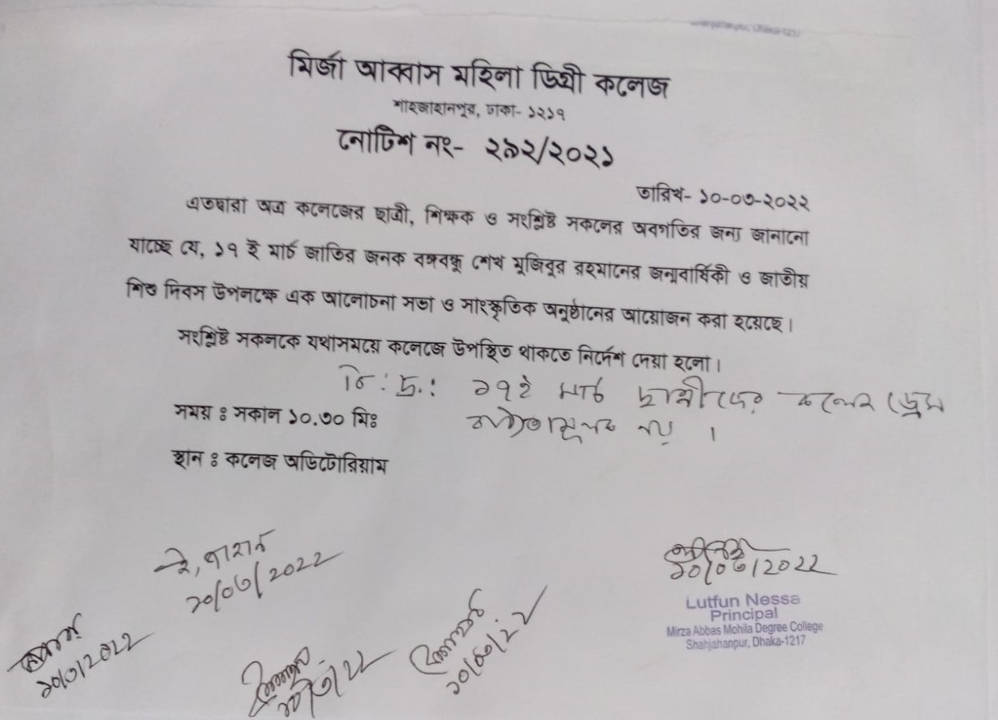 মির্জা আব্বাস মহিলা ডিগ্রী কলেজ
শাহজাহানপুর, ঢাকা- ১২১৭
নোটিশ নং- ২৯২/২০২১
তারিখ- ১০-০৩-২০২২
এতদ্বারা অত্র কলেজের ছাত্রী, শিক্ষক ও সংশ্লিষ্ট সকলের অবগতির জন্য জানানো
যাচ্ছে যে, ১৭ ই মার্চ জাতির জনক বঙ্গবন্ধু শেখ মুজিবুর রহমানের জন্মবার্ষিকী ও জাতীয়
শিশু দিবস উপলক্ষে এক আলোচনা সভা ও সাংস্কৃতিক অনুষ্ঠানের আয়োজন করা হয়েছে।
সংশ্লিষ্ট সকলকে যথাসময়ে কলেজে উপস্থিত থাকতে নির্দেশ দেয়া হলো।
বি: দ্র.: ১৭ই মার্চ ছাত্রীদের কলেজ ড্রেস
সময় ঃ সকাল ১০.৩০ মিঃ
বাধ্যতামূলক নয়।
স্থান ঃ কলেজ অডিটোরিয়াম
১০/০৩/2022
১০/০৩/2022
১০/৩/2022
১০/৩/২২
১০/০৩/২২
Lutfun Nessa
Principal
Mirza Abbas Mohila Degree College
Shahjahanpur, Dhaka-1217